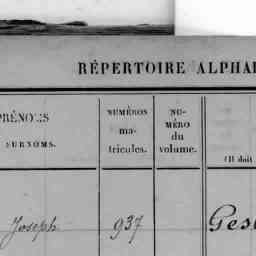 RÉPERTOIRE ALPHA
PRÉNOMS
SURNOMS.
NUMÉROS
ma-
tricules.
NU-
MÉRO
du
volume.
(Il doit
Joseph
937